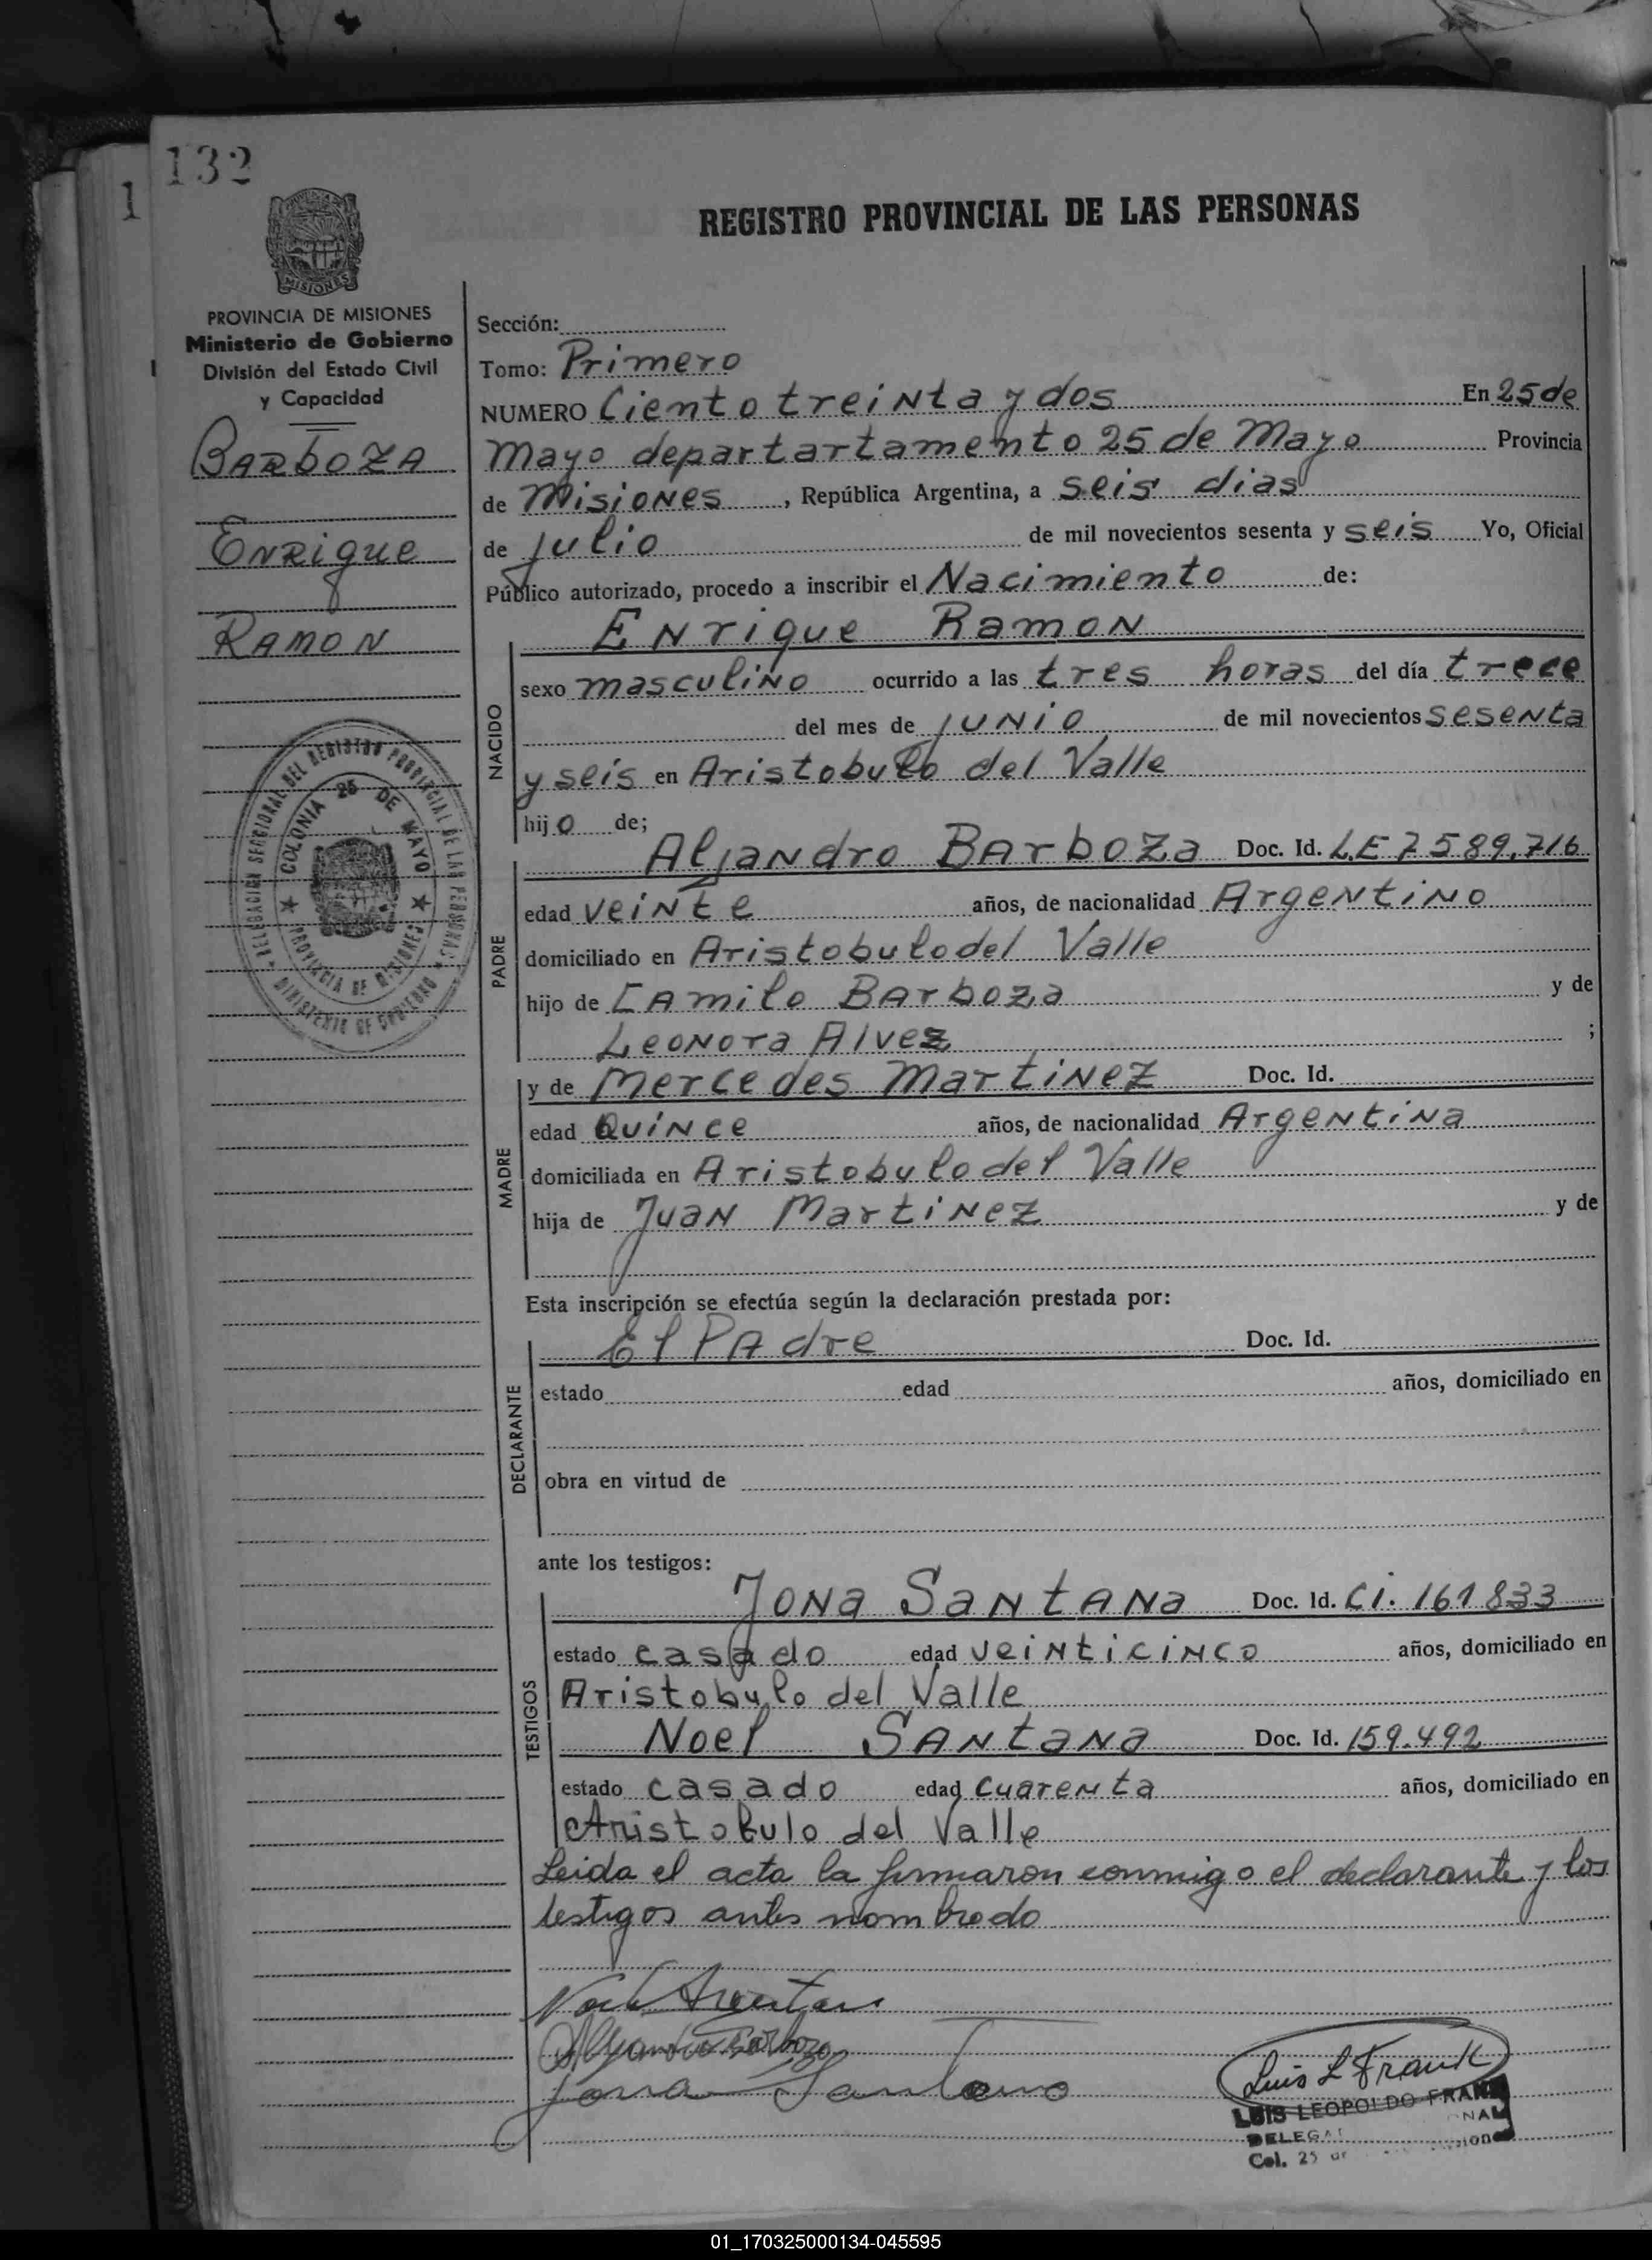 132
1
REGISTRO PROVINCIAL DE LAS PERSONAS
MISIONES
PROVINCIA DE MISIONES
Ministerio de Gobierno
División del Estado Civil
y Capacidad
BARBOZA
ENRIQUE
RAMON
DELEGACIÓN SECCIONAL DEL REGISTRO PROVINCIAL DE LAS PERSONAS
COLONIA 25 DE MAYO
PROVINCIA DE MISIONES
Sección:
Tomo: Primero
NUMERO Ciento treinta y dos En 25 de
Mayo departartamento 25 de Mayo Provincia
de Misiones, República Argentina, a seis dias
de julio de mil novecientos sesenta y seis Yo, Oficial
Público autorizado, procedo a inscribir el Nacimiento de:
NACIDO
Enrique Ramon
sexo masculino ocurrido a las tres horas del día trece
del mes de junio de mil novecientos sesenta
y seis en Aristobulo del Valle
hijo de;
PADRE
Aljandro Barboza Doc. Id. L.E 7589.716
edad veinte años, de nacionalidad Argentino
domiciliado en Aristobulo del Valle
hijo de Camilo Barboza y de
Leonora Alvez ;
MADRE
y de Mercedes Martinez Doc. Id.
edad Quince años, de nacionalidad Argentina
domiciliada en Aristobulo del Valle
hija de Juan Martinez y de
Esta inscripción se efectúa según la declaración prestada por:
DECLARANTE
El Padre Doc. Id.
estado edad años, domiciliado en
obra en virtud de
ante los testigos:
TESTIGOS
Jona Santana Doc. Id. Ci. 161833
estado casado edad veinticinco años, domiciliado en
Aristobulo del Valle
Noel Santana Doc. Id. 159.492
estado casado edad cuarenta años, domiciliado en
Aristobulo del Valle
Leida el acta la firmaron conmigo el declarante y los
testigos antes nombrado
Aljandro Barboza
Jona Santana
Luis L Frank
LUIS LEOPOLDO FRANK
Col. 25
01_170325000134-045595